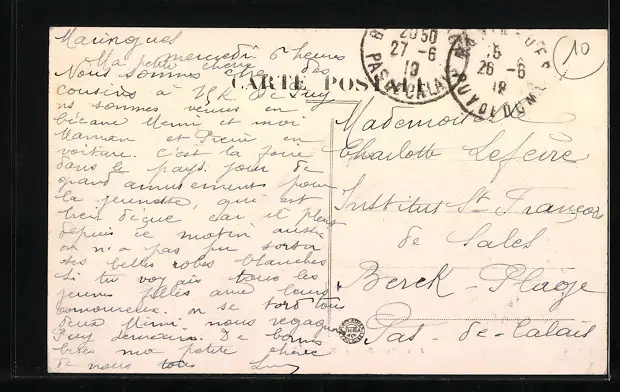 Maringues
mercredi 6 heures
Ma petite chérie
Nous sommes chez des
cousins à 15 K. de Puy
ns sommes venus en
bécane Mimi et moi
Maman et Pierre en
voiture. C'est la foire
dans le pays. jour de
grand amusement pour
la jeunesse, qui est
bien déçue car il pleut
depuis ce matin aussi
on n'a pas pu sortir
les belles robes blanches
Si tu voyais tous les
jeunes filles avec leurs
amoureux. on se tord tous
deux Mimi. nous regagnons
Puy demain. De bons
bises ma petite chérie
de nous tous
CARTE POSTALE
Mademoiselle
Charlotte Lefèvre
Institut St François
de Sales
Berck-Plage
Pas-de-Calais
20 50
27 - 6
PAS-DE-CALAIS
15
26 - 6
PUY-DE-DOME
10